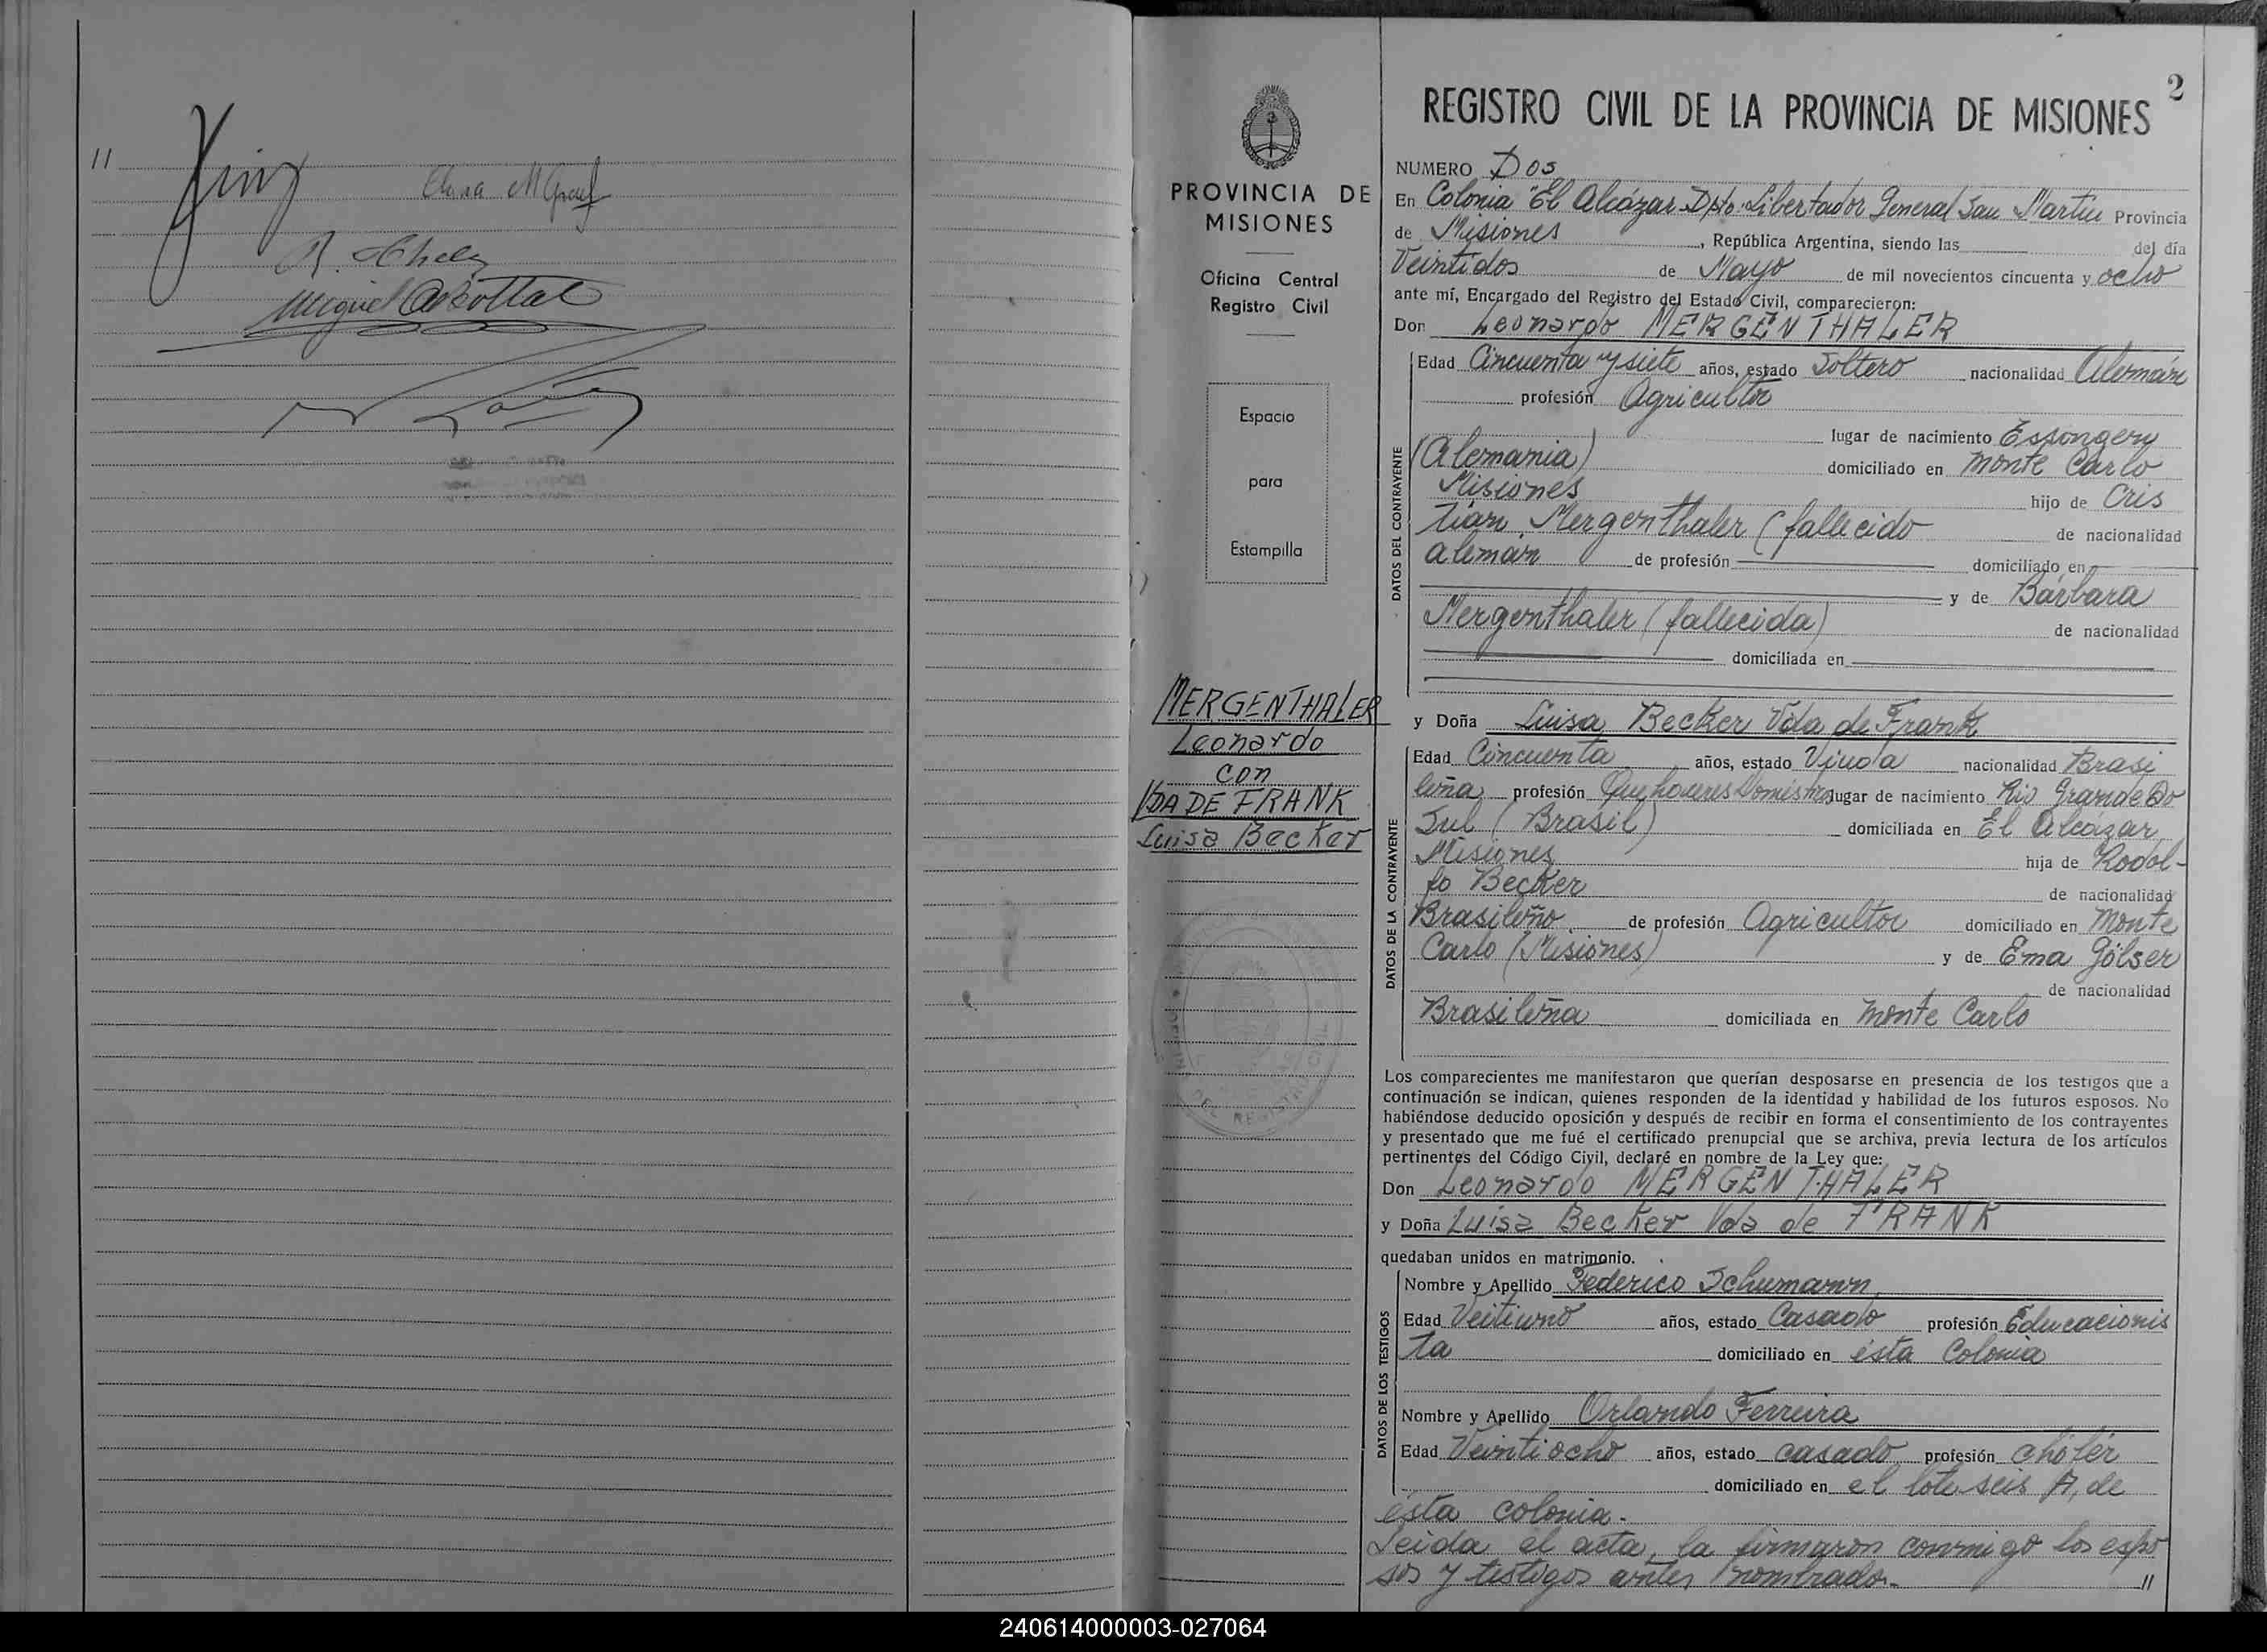 11
Miguel
PROVINCIA DE
MISIONES
Oficina Central
Registro Civil
Espacio
para
Estampilla
MERGENTHALER
Leonardo
con
VDA DE FRANK
Luisa Becker
2
REGISTRO CIVIL DE LA PROVINCIA DE MISIONES
NUMERO Dos
En Colonia "El Alcázar Dpto. Libertador General San Martín Provincia
de Misiones, República Argentina, siendo las del día
Veintidos de Mayo de mil novecientos cincuenta y ocho
ante mí, Encargado del Registro del Estado Civil, comparecieron:
Don Leonardo MERGENTHALER
DATOS DEL CONTRAYENTE
Edad Cincuenta y siete años, estado Soltero nacionalidad Alemán
profesión Agricultor
lugar de nacimiento
(Alemania) domiciliado en Monte Carlo
Misiones hijo de Cris
tian Mergenthaler (fallecido de nacionalidad
alemán de profesión domiciliado en
y de Bárbara
Mergenthaler (fallecida) de nacionalidad
domiciliada en
y Doña Luisa Becker Vda de Frank
DATOS DE LA CONTRAYENTE
Edad Cincuenta años, estado Viuda nacionalidad Brasi
leña profesión Quehaceres Domésticos lugar de nacimiento Rio Grande Do
Sul (Brasil) domiciliada en El Alcázar
Misiones hija de Rodol-
fo Becker de nacionalidad
Brasileño de profesión Agricultor domiciliado en Monte
Carlo (Misiones) y de Ema Gölser
de nacionalidad
Brasileña domiciliada en Monte Carlo
Los comparecientes me manifestaron que querían desposarse en presencia de los testigos que a
continuación se indican, quienes responden de la identidad y habilidad de los futuros esposos. No
habiéndose deducido oposición y después de recibir en forma el consentimiento de los contrayentes
y presentado que me fué el certificado prenupcial que se archiva, previa lectura de los artículos
pertinentes del Código Civil, declaré en nombre de la Ley que:
Don Leonardo MERGENTHALER
y Doña Luisa Becker Vda de FRANK
quedaban unidos en matrimonio.
DATOS DE LOS TESTIGOS
Nombre y Apellido Federico Schumann
Edad Veitiuno años, estado Casado profesión Educacionis
ta domiciliado en ésta Colonia
Nombre y Apellido Orlando Ferreira
Edad Veintiocho años, estado casado profesión chófer
domiciliado en el lote seis A, de
ésta colonia.
Leida el acta, la firmaron conmigo los espo
sos y testigos antes nombrados. 11
240614000003-027064